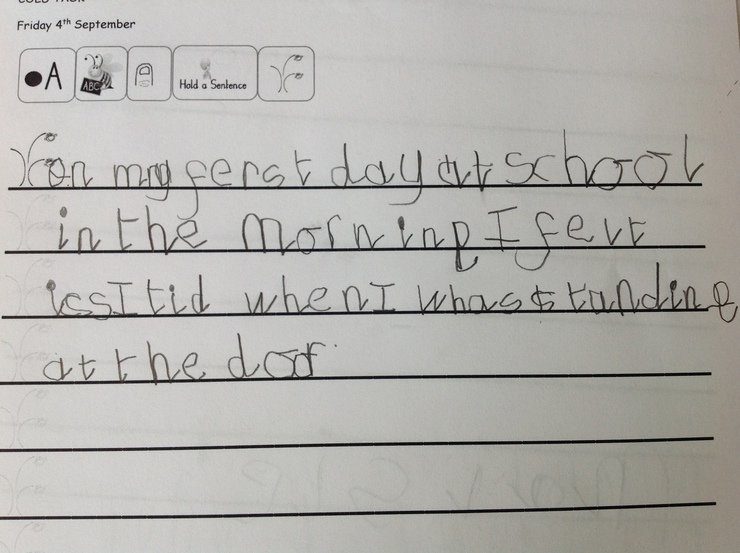 COLD TASK
Friday 4th September
A
ABC
Hold a Sentence
on my ferst day at school
in the morninp I felt
icsItid when I whas standing
at the door